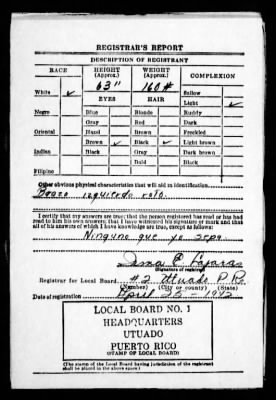 REGISTRAR'S REPORT
DESCRIPTION OF REGISTRANT
RACE HEIGHT (Approx.) WEIGHT (Approx.) COMPLEXION
63" 160# Sallow
White ✓ EYES HAIR Light ✓
Negro Blue Blonde Ruddy
Gray Red Dark
Oriental Hazel Brown Freckled
Brown ✓ Black ✓ Light brown
Indian Black Gray Dark brown
Bald Black
Filipino
Other obvious physical characteristics that will aid in identification
Brazo izquierdo roto.
I certify that my answers are true; that the person registered has read or has had
read to him his own answers; that I have witnessed his signature or mark and that
all of his answers of which I have knowledge are true, except as follows:
Ninguno que yo sepa
(Signature of registrar)
Registrar for Local Board #2 Utuado P.R.
(Number) (City or county) (State)
Date of registration April 25 - 1942
LOCAL BOARD NO. 1
HEADQUARTERS
UTUADO
PUERTO RICO
(STAMP OF LOCAL BOARD)
(The stamp of the Local Board having jurisdiction of the registrant
shall be placed in the above space.)